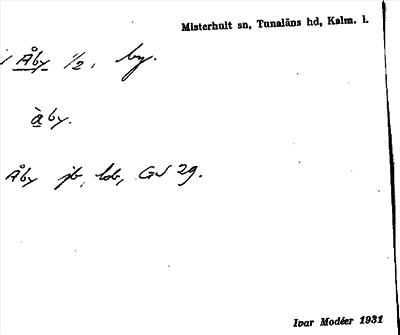 Misterhult sn, Tunaläns hd, Kalm. l.
Åby 1/2, by.
àby.
Åby jb, ldb, GV 29.
Ivar Modéer 1931